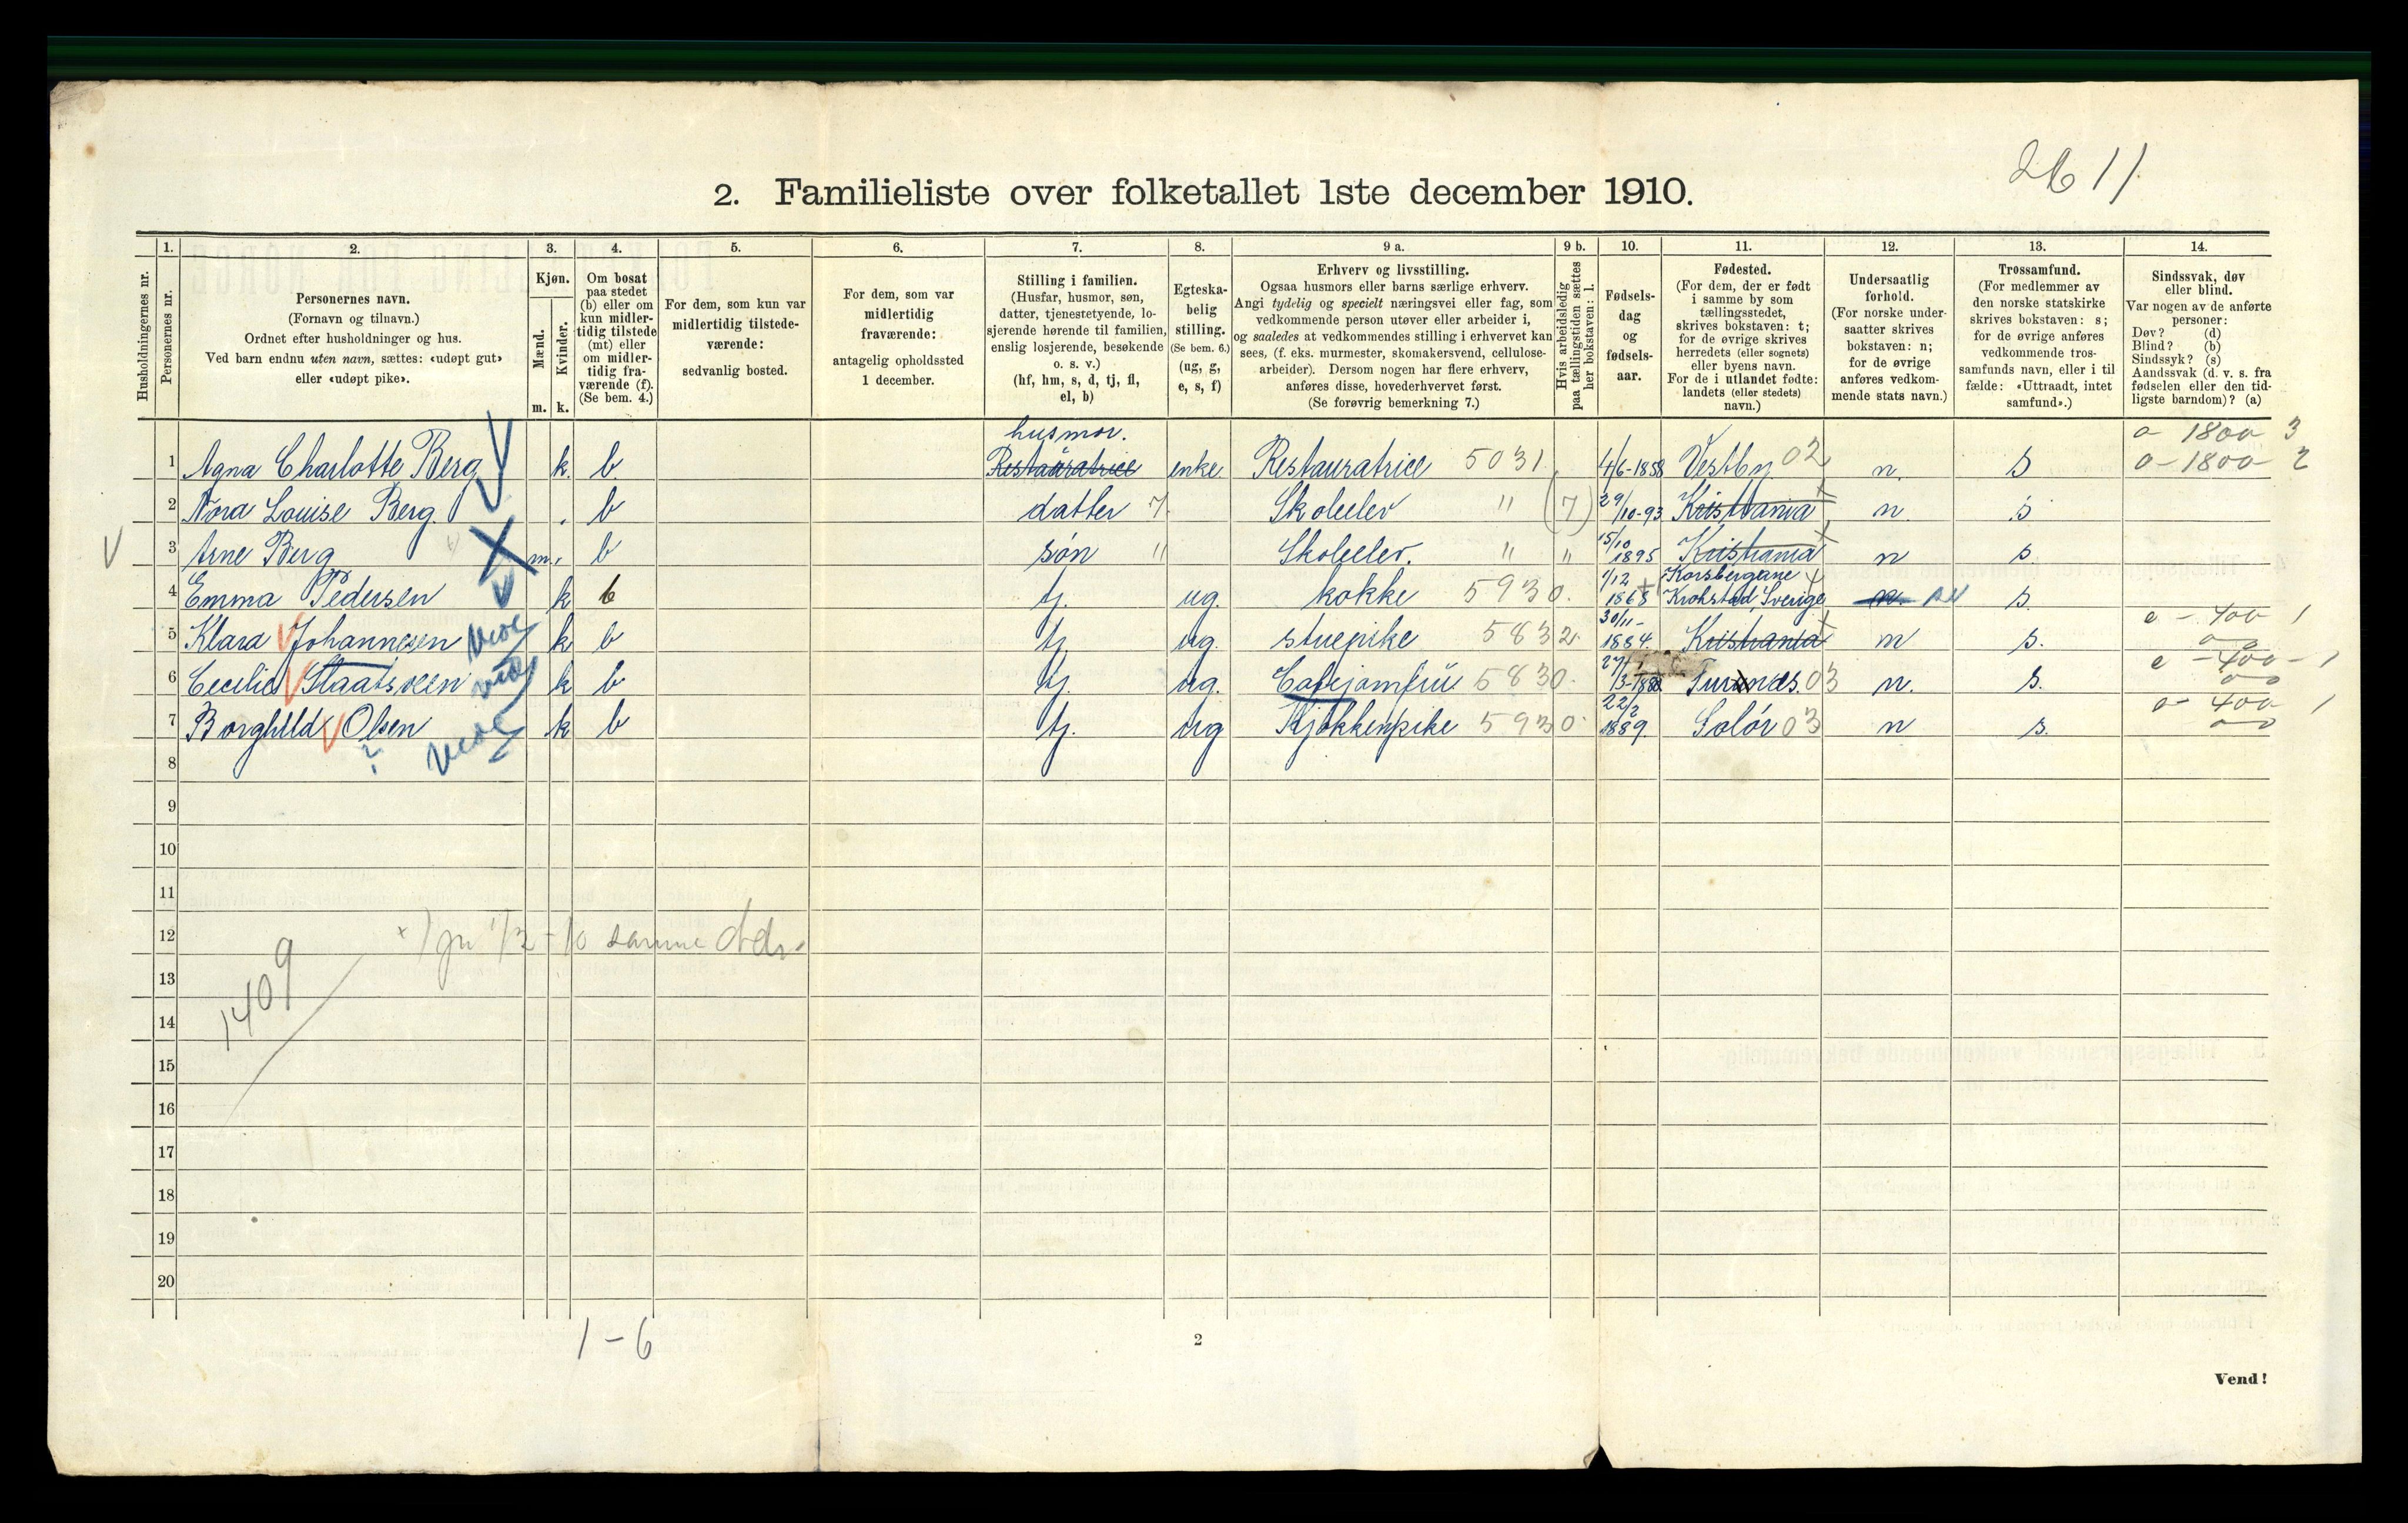 2611
2. Familieliste over folketallet 1ste december 1910.
Husholdningernes nr.
1.
Personernes nr.
2.
Personernes navn.
(Fornavn og tilnavn.)
Ordnet efter husholdninger og hus.
Ved barn endnu uten navn, sættes: «udøpt gut»
eller «udøpt pike».
3.
Kjøn.
Mænd.
Kvinder.
m. k.
4.
Om bosat
paa stedet
(b) eller om
kun midler-
tidig tilstede
(mt) eller
om midler-
tidig fra-
værende (f).
(Se bem. 4.)
5.
For dem, som kun var
midlertidig tilstede-
værende:
sedvanlig bosted.
6.
For dem, som var
midlertidig
fraværende:
antagelig opholdssted
1 december.
7.
Stilling i familien.
(Husfar, husmor, søn,
datter, tjenestetyende, lo-
sjerende hørende til familien,
enslig losjerende, besøkende
o. s. v.)
(hf, hm, s, d, tj, fl,
el, b)
8.
Egteska-
belig
stilling.
(Se bem. 6.)
(ug, g,
e, s, f)
9 a.
Erhverv og livsstilling.
Ogsaa husmors eller barns særlige erhverv.
Angi tydelig og specielt næringsvei eller fag, som
vedkommende person utøver eller arbeider i,
og saaledes at vedkommendes stilling i erhvervet kan
sees, (f. eks. murmester, skomakersvend, cellulose-
arbeider). Dersom nogen har flere erhverv,
anføres disse, hovederhvervet først.
(Se forøvrig bemerkning 7.)
9 b.
Hvis arbeidsledig
paa tællingstiden sættes
her bokstaven: l.
10.
Fødsels-
dag
og
fødsels-
aar.
11.
Fødested.
(For dem, der er født
i samme by som
tællingsstedet,
skrives bokstaven: t;
for de øvrige skrives
herredets (eller sognets)
eller byens navn.
For de i utlandet fødte:
landets (eller stedets)
navn.)
12.
Undersaatlig
forhold.
(For norske under-
saatter skrives
bokstaven: n;
for de øvrige
anføres vedkom-
mende stats navn.)
13.
Trossamfund.
(For medlemmer av
den norske statskirke
skrives bokstaven: s;
for de øvrige anføres
vedkommende tros-
samfunds navn, eller i til
fælde: «Uttraadt, intet
samfund».)
14.
Sindssvak, døv
eller blind.
Var nogen av de anførte
personer:
Døv? (d)
Blind? (b)
Sindssyk? (s)
Aandssvak (d. v. s. fra
fødselen eller den tid-
ligste barndom)? (a)
husmor. 1800 3
1 Agna Charlotte Berg k. b. Restauratrice enke. Restauratrice 5031 4/6-1858 Vestby 02 n. s 0-1800- 2
2 Nora Louise Berg. b datter 7 Skoleelev " (7) 29/10-93 Kristiania n. s
3 Arne Berg m. b søn " Skoleelev. " " 15/10 1895 Kristiania n s.
4 Emma Pedersen k b tj. ug. kokke 5930. 1/12 1865 Korsbergane Krokstad Sverige n. s.
5 Klara Johannesen k b tj. ug. stuepike 5832. 30/11-1884. Kristiania n s. e - 400 1
6 Cecilie Staatsveen k b tj. ug. Cafejomfru 5830. 27/ 03 n. s. e - 400 - 1
7 Borghild Olsen k b tj. ug Kjøkkenpike 5930. 22/2 1889. Solør 03 n s. 400 1
?
8
9
10
11
12 samme
13
1409
14
15
16
17
18
19
20
1-6
2
Vend!